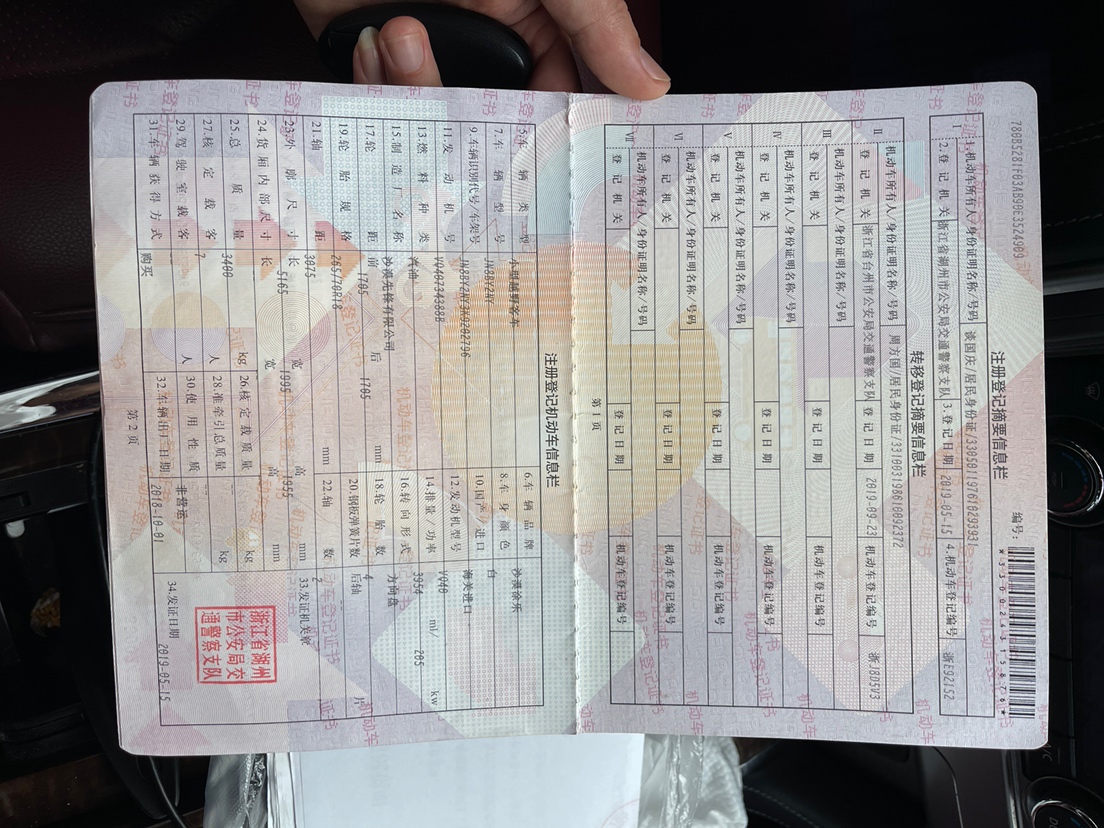 注册登记摘要信息栏
编号:
1.机动车所有人/身份证明名称/号码 谈国庆/居民身份证/330501197610293931
I 2.登记机关 浙江省湖州市公安局交通警察支队 3.登记日期 2019-05-15 4.机动车登记编号 浙E92152
转移登记摘要信息栏
II 机动车所有人/身份证明名称/号码 周方国/居民身份证/331003198610092372
登记机关 浙江省台州市公安局交通警察支队 登记日期 2019-09-23 机动车登记编号 浙J8D5V3
III 机动车所有人/身份证明名称/号码
登记机关 登记日期 机动车登记编号
IV 机动车所有人/身份证明名称/号码
登记机关 登记日期 机动车登记编号
V 机动车所有人/身份证明名称/号码
登记机关 登记日期 机动车登记编号
VI 机动车所有人/身份证明名称/号码
登记机关 登记日期 机动车登记编号
VII 机动车所有人/身份证明名称/号码
登记机关 登记日期 机动车登记编号
第1页
注册登记机动车信息栏
5.车辆类型 小型越野客车 6.车辆品牌 沙漠途乐
7.车辆型号 JN8BY2NY 8.车身颜色
9.车辆识别代号/车架号 10.国产/进口 海关进口
11.发动机号 VQ40734388B 12.发动机型号 VQ40
13.燃料种类 汽油 14.排量/功率 3954 ml/ 205 kw
15.制造厂名称 沙漠先锋有限公司 16.转向形式 方向盘
17.轮距 前 1705 后 1705 mm 18.轮胎数 4
19.轮胎规格 265/70R18 20.钢板弹簧片数 后轴 片
21.轴距 3075 mm 22.轴数 2
23.外廓尺寸 长 5165 宽 1995 高 1955 mm 33.发证机关章
24.货厢内部尺寸 长 宽 高 mm
25.总质量 3400 kg 26.核定载质量 kg
27.核定载客 7 人 28.准牵引总质量 kg
29.驾驶室载客 人 30.使用性质 非营运
31.车辆获得方式 购买 32.车辆出厂日期 2018-10-01 34.发证日期 2019-05-15
浙江省湖州
市公安局交
通警察支队
第2页